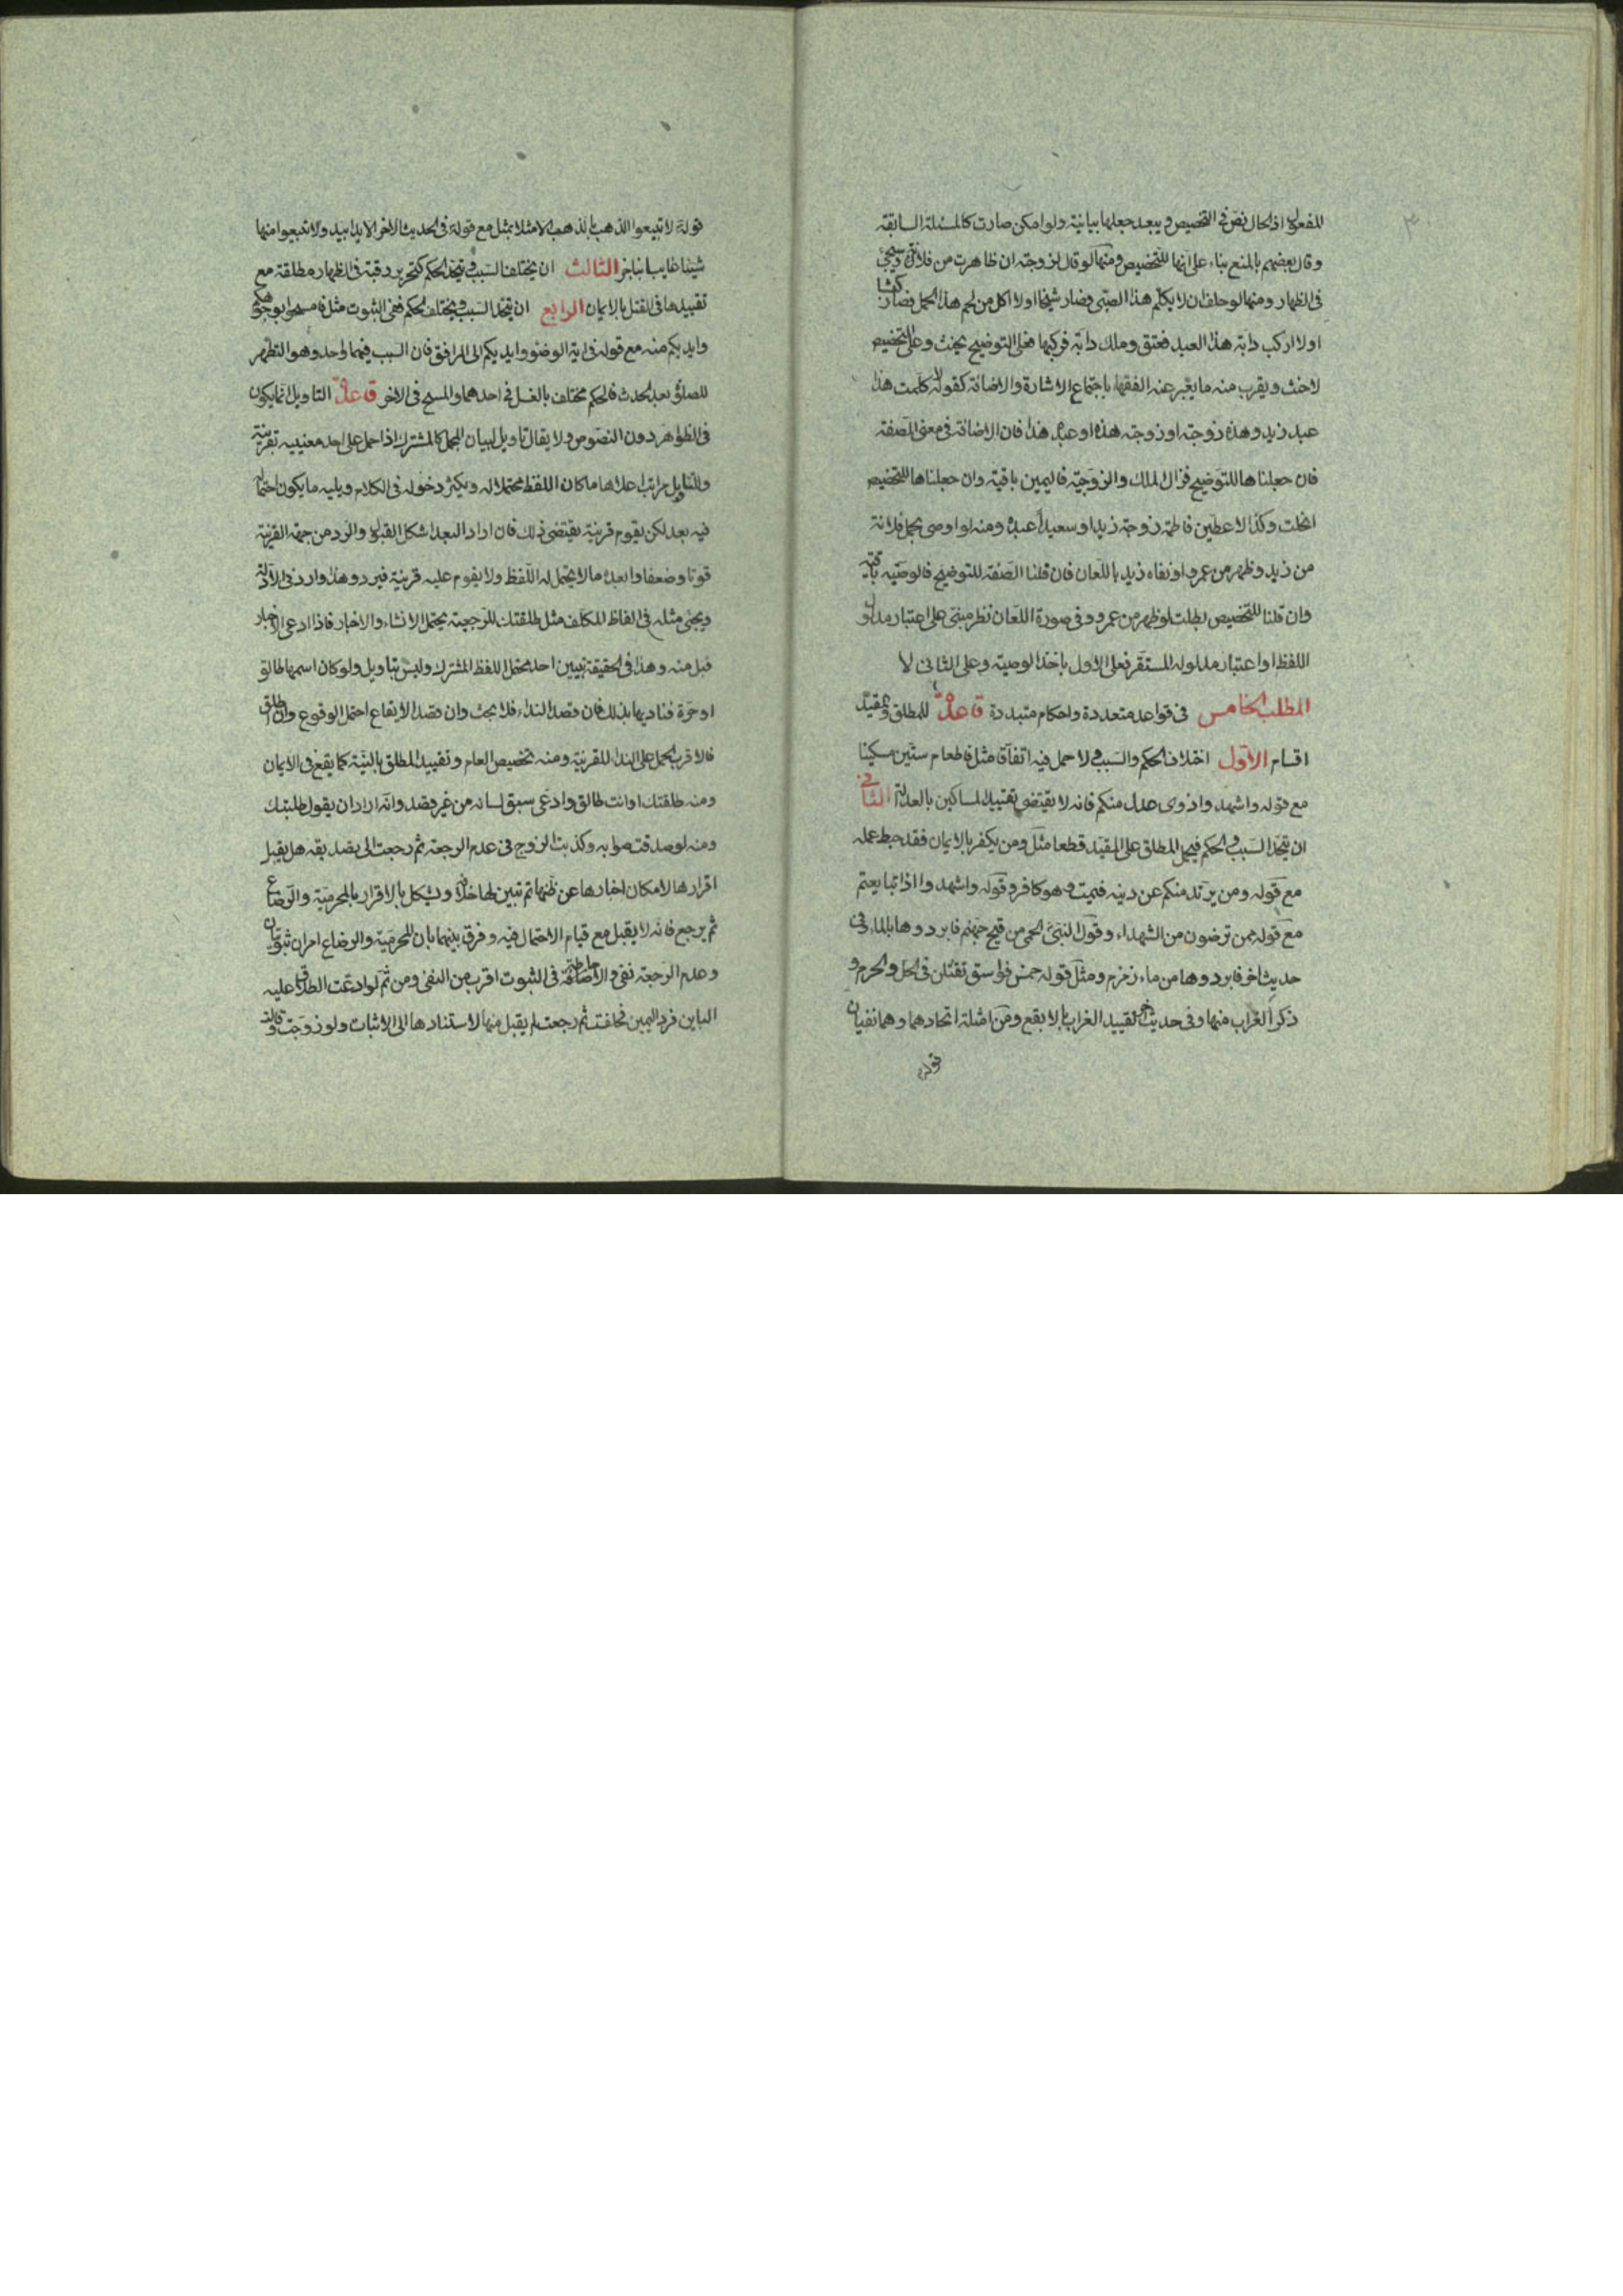 المفعول اذ الحال نص فى التخصيص ويبعد جعلها بيانية ولو امكن صارت كالمسئلة السابقة
وقال بعضهم بالمنع بناء على انها للتخصيص ومنها لو قال لزوجته ان ظاهرت من فلانة
فى الظهار ومنها لو حلف ان لا يكلم هذا الصبى فصار شيخا او لا اكل من لحم هذا الحمل فصار كبشا
او لا اركب دابة هذا العبد فعتق وملك دابة فركبها فعلى التوضيح يحنث وعلى التخصيص
لا حنث ويقرب منه ما يعبر عنه الفقهاء باجتماع الاشارة والاضافة كقوله لا كلمت هذا
عبد زيد وهذه زوجته او زوجته هذه او عبده هذا فان الاضافة فى معنى الصفة
فان جعلناها للتوضيح فزال الملك والزوجية فاليمين باقية وان جعلناها للتخصيص
انحلت وكذا لاعطين فاطمة زوجة زيد او سعيدا عبده ومنه لو اوصى بحمل فلانة
من زيد وظهر من عمرو او نفاه زيد باللعان فان قلنا الصفة للتوضيح فالوصية باقية
وان قلنا للتخصيص بطلت لو ظهر من عمرو وفى صورة اللعان نظر مبنى على اعتبار مدلول
اللفظ او اعتبار مدلوله المستقر فعلى الاول ياخذ الوصية وعلى الثانى لا
المطلب الخامس فى قواعد متعددة واحكام متبددة قاعدة للمطلق والمقيد
اقسام الاول اختلاف الحكم والسبب لا حمل فيه اتفاقا مثل فاطعام ستين مسكينا
مع قوله واشهدوا ذوى عدل منكم فانه لا يقتضى تقييد المساكين بالعدالة الثانى
ان يتحد السبب والحكم فيحمل المطلق على المقيد قطعا مثل ومن يكفر بالايمان فقد حبط عمله
مع قوله ومن يرتد منكم عن دينه فيمت وهو كافر وقوله واشهدوا اذا تبايعتم
مع قوله ممن ترضون من الشهداء وقول النبى الحمى من قيح جهنم فابردوها بالماء وفى
حديث اخر فابردوها من ماء زمزم ومثل قوله خمس فواسق تقتلن فى الحل والحرم و
ذكر الغراب منها وفى حديث اخر تقييد الغراب بالابقع ومن امثلة اتحادهما وهما نفيان
قوله
قوله لا تبيعوا الذهب بالذهب الا مثلا بمثل مع قوله فى الحديث الاخر الا يدا بيد ولا تبيعوا منها
شيئا غايبا بناجز الثالث ان يختلف السبب ويتحد الحكم كتحرير رقبة فى الظهار مطلقة مع
تقييدها فى القتل بالايمان الرابع ان يتحد السبب ويختلف الحكم فمن الثبوت مثل فامسحوا بوجوهكم
وايديكم منه مع قوله فى اية الوضوء وايديكم الى المرافق فان السبب فيهما واحد وهو التطهر
للصلوة بعد الحدث فالحكم مختلف بالغسل فى احدهما والمسح فى الاخر قاعدة التاويل انما يكون
فى الظواهر دون النصوص ولا يقال تاويل لبيان المجمل كالمشترك اذا حمل على احد معنييه بقرينة
وللتاويل مراتب اعلاها ما كان اللفظ محتملا له ويكثر دخوله فى الكلام ويليه ما يكون احتماله
فيه بعد لكن يقوم قرينة يقتضى ذلك فان ازداد البعد اشكل القبول والرد من جهة القرينة
قوتا وضعفا وابعده ما لا يحتمل له اللفظ ولا يقوم عليه قرينة فيرد وهذا وارد فى الادلة
ويجئ مثله فى الفاظ المكلف مثل طلقتك للرجعية يحتمل الانشاء والاخبار فاذا ادعى الاخبار
قبل منه وهذا فى الحقيقة تبيين احد محتمل اللفظ المشترك وليس بتاويل ولو كان اسمها طالق
او حرة فناديها بذلك فان قصد النداء فلا بحث وان قصد الايقاع احتمل الوقوع وان اطلق
فالاقرب الحمل على النداء للقرينة ومنه تخصيص العام وتقييد المطلق بالنية كما يقع فى الايمان
ومنه طلقتك او انت طالق وادعى سبق لسانه من غير قصد وانه اراد ان يقول طلبتك
ومنه لو صدقت صوابه وكذبت الزوج فى عدم الرجعة ثم رجعت الى تصديقه هل يقبل
اقرارها لامكان اخبارها عن ظنها ثم تبين لها خلافه ويشكل بالاقرار بالمحرمية والرضاع
ثم يرجع فانه لا يقبل مع قيام الاحتمال فيه وفرق بينهما بان المحرمية والرضاع امران ثبوتيان
وعدم الرجعة نفى والاحاطة فى الثبوت اقرب من النفى ومن ثم لو ادعت الطلاق عليه
الباين فرد اليمين فحلفت ثم رجعت لم يقبل منها لاستنادها الى الاثبات ولو زوجت وقالت